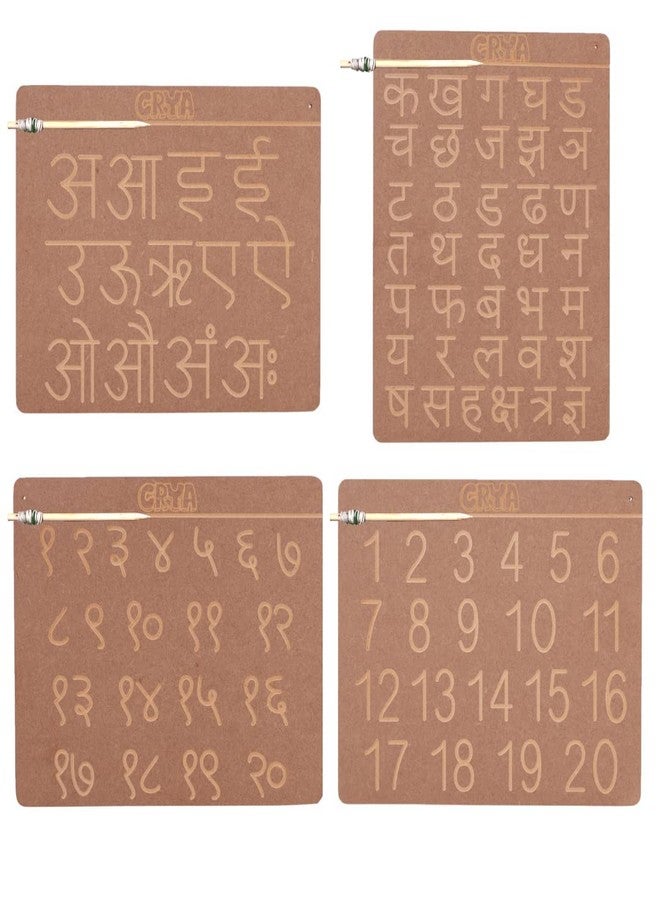 CRYA
अ आ इ ई
उ ऊ ऋ ए ऐ
ओ औ अं अः
CRYA
क ख ग घ ड
च छ ज झ ञ
ट ठ ड ढ ण
त थ द ध न
प फ ब भ म
य र ल व श
ष स ह क्ष त्र ज्ञ
CRYA
१ २ ३ ४ ५ ६ ७
८ ९ १० ११ १२
१३ १४ १५ १६
१७ १८ १९ २०
CRYA
1 2 3 4 5 6
7 8 9 10 11
12 13 14 15 16
17 18 19 20